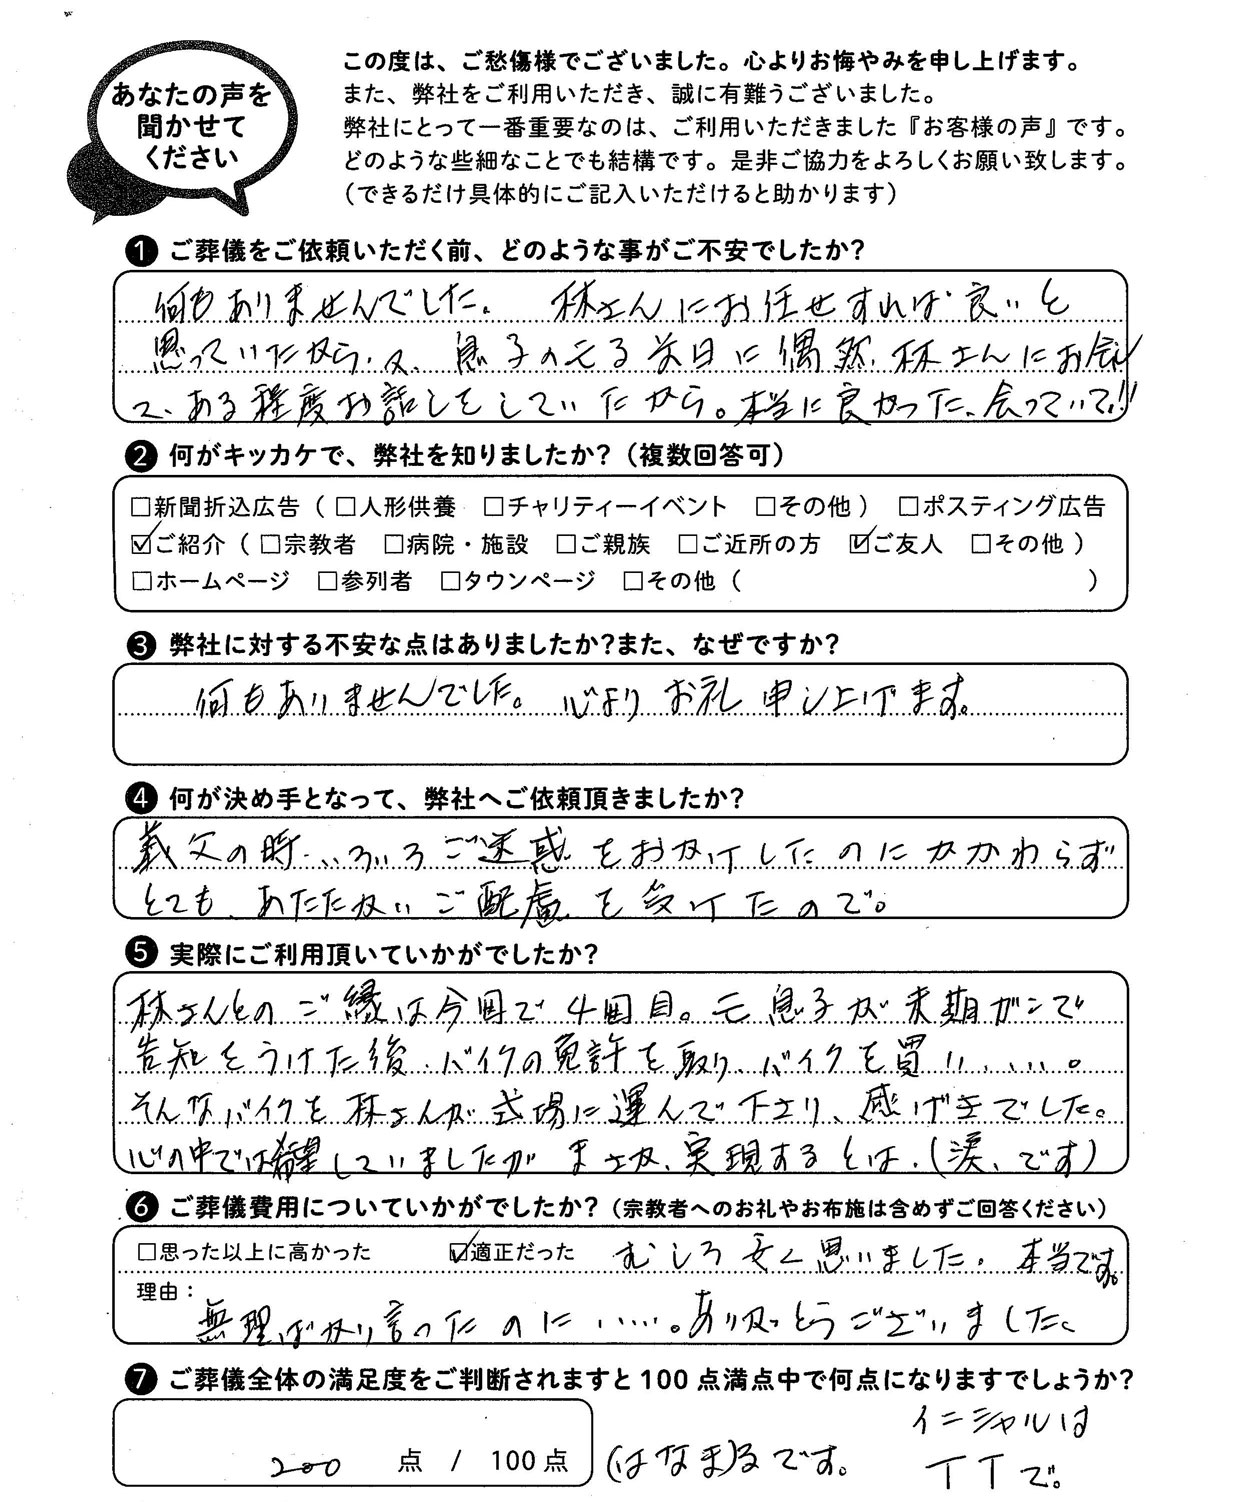 あなたの声を
聞かせて
ください
この度は、ご愁傷様でございました。心よりお悔やみを申し上げます。
また、弊社をご利用いただき、誠に有難うございました。
弊社にとって一番重要なのは、ご利用いただきました『お客様の声』です。
どのような些細なことでも結構です。是非ご協力をよろしくお願い致します。
（できるだけ具体的にご記入いただけると助かります）
1 ご葬儀をご依頼いただく前、どのような事がご不安でしたか?
何もありませんでした。 林さんにお任せすれば良いと
思っていたから、又、息子の元る前日に偶然、林さんにお会し
て、ある程度お話しをしていたから。本当に良かった、会っていて!!
2 何がキッカケで、弊社を知りましたか?（複数回答可）
□新聞折込広告（ □人形供養 □チャリティーイベント □その他 ） □ポスティング広告
☑ご紹介（ □宗教者 □病院・施設 □ご親族 □ご近所の方 ☑ご友人 □その他 ）
□ホームページ □参列者 □タウンページ □その他（ ）
3 弊社に対する不安な点はありましたか?また、なぜですか?
何もありませんでした。心よりお礼申し上げます。
4 何が決め手となって、弊社へご依頼頂きましたか?
義父の時、いろいろご迷惑をおかけしたのにかかわらず
とても、あたたかいご配慮を受けたので。
5 実際にご利用頂いていかがでしたか?
林さんとのご縁は今回で4回目。元息子が末期ガンで
告知をうけた後、バイクの免許を取り、バイクを買い、、、、。
そんなバイクを林さんが式場に運んで下さり、感げきでした。
心の中では希望していましたがまさか、実現するとは、(涙、です)
6 ご葬儀費用についていかがでしたか?（宗教者へのお礼やお布施は含めずご回答ください）
□思った以上に高かった ☑適正だった むしろ安く思いました。本当です。
理由：
無理ばかり言ったのに‥‥‥。ありがとうございました。
7 ご葬儀全体の満足度をご判断されますと100点満点中で何点になりますでしょうか?
200 点 / 100点 (はなま)るです。
イニシャルは
TTで。